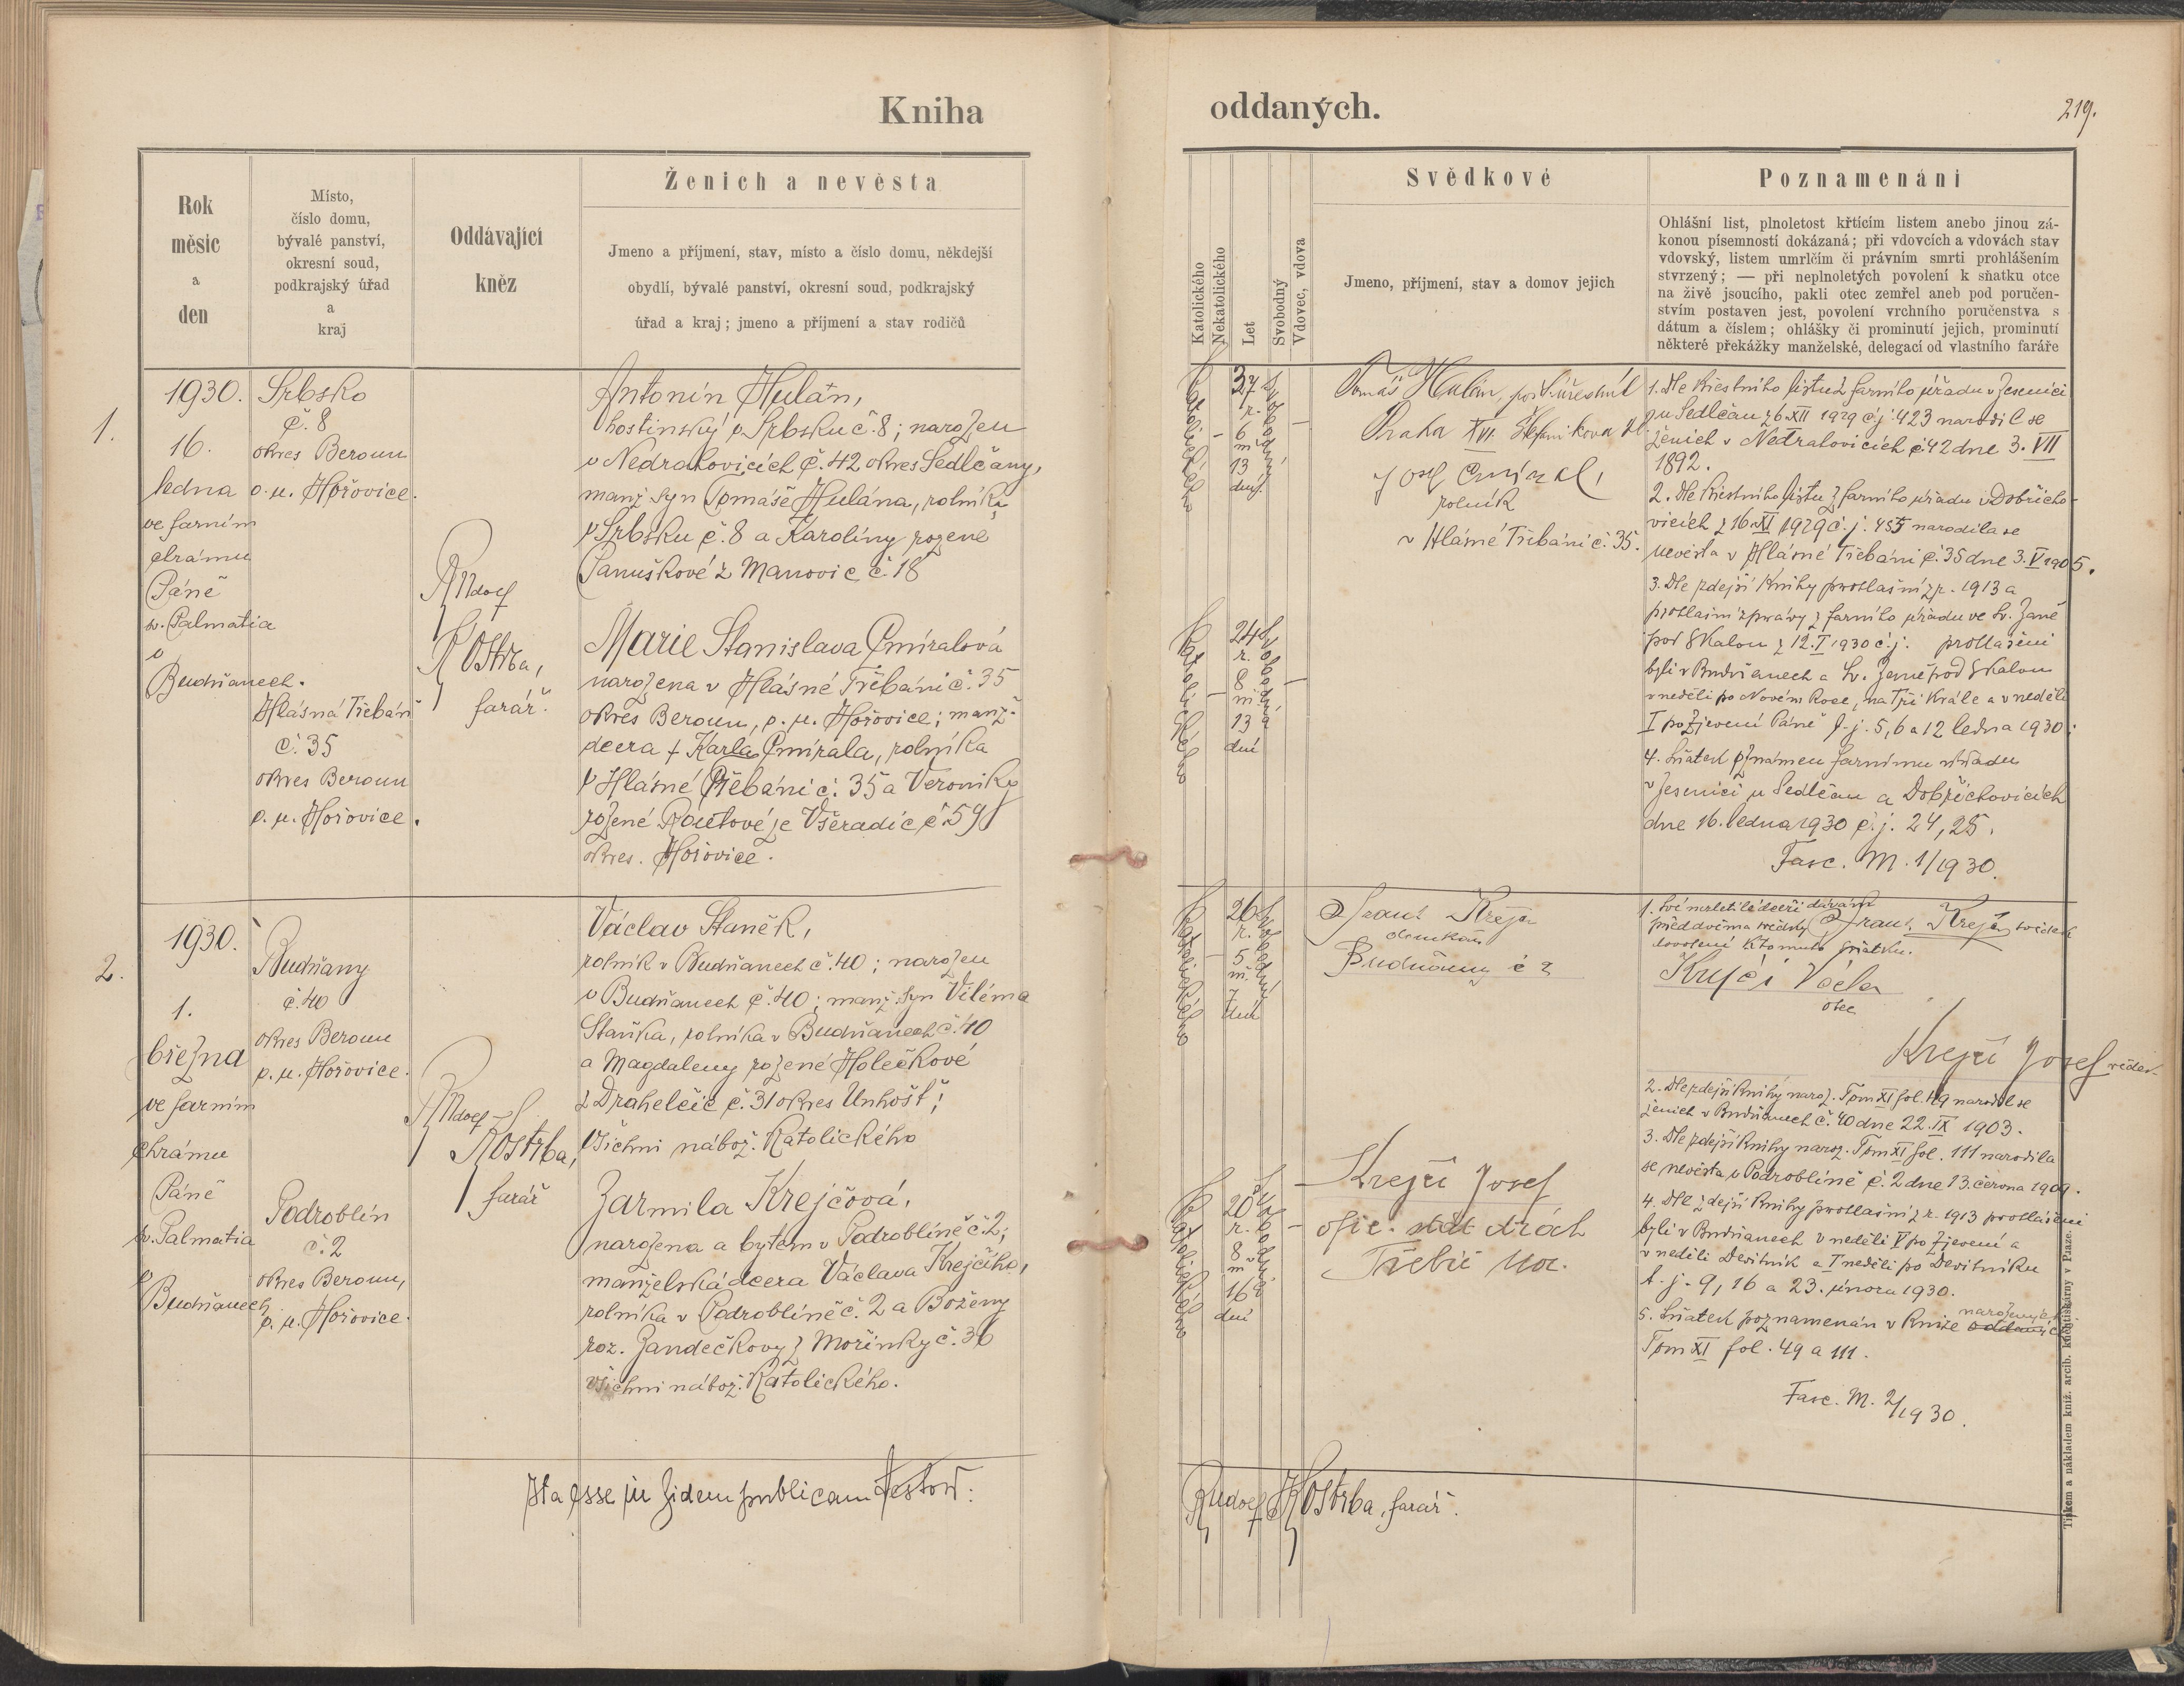 Kniha
oddaných.
219.
Rok
měsíc
a
den
Místo,
číslo domu,
bývalé panství,
okresní soud,
podkrajský úřad
a
kraj
Oddávající
kněz
Ženich a nevěsta
Jmeno a příjmení, stav, místo a číslo domu, někdejší
obydlí, bývalé panství, okresní soud, podkrajský
úřad a kraj; jmeno a příjmení a stav rodičů
Katolického
Nekatolického
Let
Svobodný
Vdovec, vdova
Svědkové
Jmeno, příjmení, stav a domov jejich
Poznamenání
Ohlášní list, plnoletost křtícím listem anebo jinou zá-
konou písemností dokázaná; při vdovcích a vdovách stav
vdovský, listem umrlčím či právním smrti prohlášením
stvrzený; — při neplnoletých povolení k sňatku otce
na živě jsoucího, pakli otec zemřel aneb pod poručen-
stvím postaven jest, povolení vrchního poručenstva s
dátum a číslem; ohlášky či prominutí jejich, prominutí
některé překážky manželské, delegací od vlastního faráře
1.
1930.
16.
ledna
ve farním
chrámu
Páně
sv. Palmatia
v
Budňanech.
Srbsko
č. 8
okres Beroun
p. ú. Hořovice.
Hlásná Třebáň
č. 35
okres Beroun
p. ú. Hořovice.
Rudolf
Kostrba,
farář.
Antonín Hulán,
hostinský v Srbsku č. 8; narozen
v Nedrahovicích č. 42 okres Sedlčany,
manž. syn Tomáše Hulána, rolníka
v Srbsku č. 8 a Karolíny rozené
Panuškové z Manovic č. 18
Marie Stanislava Čmíralová
narozena v Hlásné Třebáni č. 35
okres Beroun, p. ú. Hořovice; manž.
dcera † Karla Čmírala, rolníka
v Hlásné Třebáni č. 35 a Veroniky
rozené Routové ze Všeradic č. 59
okres. Hořovice.
katolického
37
r.
6
m.
13
dní.
svobodný
katolického
24
r.
8
m.
13
dní
svobodná
Tomáš Hulán,
Praha XVI. Štefanikova
Josef Čmíral,
rolník
v Hlásné Třebáni č. 35.
1. Dle křestního listu z farního úřadu v Jesenici
u Sedlčan z 6. XII 1929 č. j. 423 narodil se
ženich v Nedrahovicích č. 42 dne 3. VII
1892.
2. Dle křestního listu z farního úřadu v Dobřicho-
vicích z 16. XI 1929 č. j. 455 narodila se
nevěsta v Hlásné Třebáni č. 35 dne 3. V 1905.
3. Dle zdejší knihy prohlašní z r. 1913 a
prohlašní zprávy z farního úřadu ve Sv. Janě
pod Skalou z 12. I 1930 č. j. prohlášeni
byli v Budňanech a Sv. Janě pod Skalou
v neděli po Novém Roce, na Tři Krále a v neděli
I po Zjevení Páně t. j. 5, 6 a 12 ledna 1930.
4. Sňatek oznámen farnímu úřadu
v Jesenici u Sedlčan a Dobřichovicích
dne 16. ledna 1930 č. j. 24, 25.
Fasc. M. 1/1930.
2.
1930.
1.
března
ve farním
chrámu
Páně
sv. Palmatia
v
Budňanech
Budňany
č. 40
okres Beroun
p. ú. Hořovice.
Podroblín
č. 2
okres Beroun,
p. ú. Hořovice.
Rudolf
Kostrba,
farář
Václav Staněk,
rolník v Budňanech č. 40; narozen
v Budňanech č. 40; manž. syn Viléma
Staňka, rolníka v Budňanech č. 40
a Magdaleny rozené Holečkové
z Drahelčic č. 31 okres Unhošť;
všichni nábož. katolického
Jarmila Krejčová,
narozena a bytem v Podroblíně č. 2;
manželská dcera Václava Krejčího,
rolníka v Podroblíně č. 2 a Boženy
roz. Jandečkovy z Mořinky č. 36
všichni nábož. katolického.
katolického
26
r.
5
m.
7
dní
svobodný
katolického
20
r.
8
m
16
dní
svobodná
Frant. Krejčí
Budňany č 2
Krejčí Josef
ofic. stát drah
Třebíč Mor.
1. Své nezletilé dceři dávám
před dvěma svědky Frant. Krejčí svědek
dovolení k tomuto sňatku.
Krejčí Václav
otec
Krejčí Josef svědek
2. Dle zdejší knihy naroz. Tom XI fol. 49 narodil se
ženich v Budňanech č. 40 dne 22. IX 1903.
3. Dle zdejší knihy naroz. Tom XI fol. 111 narodila
se nevěsta v Podroblíně č. 2 dne 13. června 1909.
4. Dle zdejší knihy prohlašní z r. 1913 prohlášeni
byli v Budňanech v neděli V po Zjevení a
v neděli Devítník a I neděli po Devítníku
t. j. 9, 16 a 23. února 1930.
5. Sňatek poznamenán v knize oddaných narozených
Tom XI fol. 49 a 111.
Fasc. M. 2/1930.
Ita esse in fidem publicam testor:
Rudolf Kostrba, farář.
Tiskem a nákladem kníž. arcib. knihtiskárny v Praze.